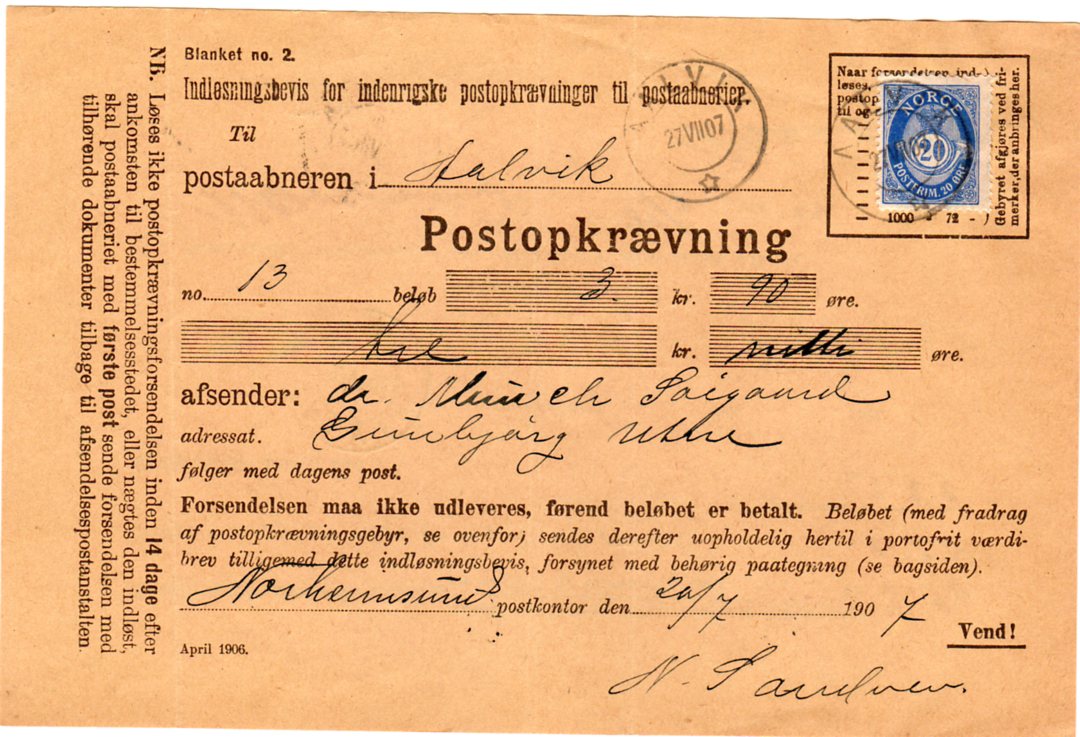 Blanket no. 2.
Indløsningsbevis for indenrigske postopkrævninger til postaabnerier.
Til
postaabneren i Aalvik
AALVIK
27 VII 07
Naar forsendelsen ind-
løses,
postop
til og
NORGE
20
POSTFRIM. 20 ØRE
1000 - 72 - )
Gebyret afgjøres ved fri-
merker, der anbringes her.
Postopkrævning
no. 13 beløb 3. kr. 90 øre.
tre kr. nitti øre.
afsender: dr. Munch Søigaard
adressat. Gunbjørg Utne
følger med dagens post.
Forsendelsen maa ikke udleveres, førend beløbet er betalt. Beløbet (med fradrag
af postopkrævningsgebyr, se ovenfor) sendes derefter uopholdelig hertil i portofrit værdi-
brev tilligemed dette indløsningsbevis, forsynet med behørig paategning (se bagsiden).
Norheimsund postkontor den 20/7 1907
Vend!
April 1906.
N. Sandven.
NB. Løses ikke postopkrævningsforsendelsen inden 14 dage efter
ankomsten til bestemmelsesstedet, eller nægtes den indløst,
skal postaabneriet med første post sende forsendelsen med
tilhørende dokumenter tilbage til afsendelsespostanstalten.